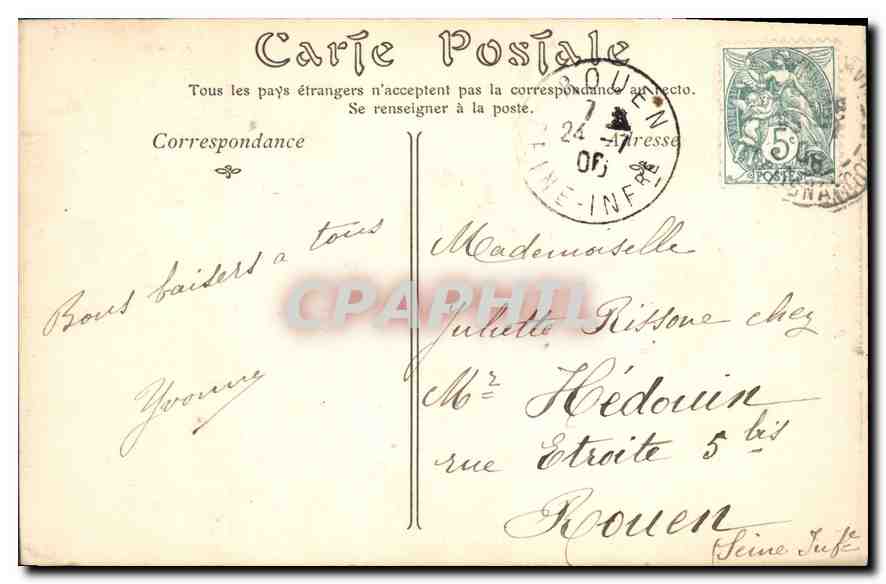 Carte Postale
Tous les pays étrangers n'acceptent pas la correspondance au recto.
Se renseigner à la poste.
Correspondance
Adresse
ROUEN
7
24 -7
06
SEINE-INFRE
5c
POSTES
Bons baisers a tous
Yvonne
CPAPHIL
Mademoiselle
Juliette Rissone chez
Mr Hédouin
rue Etroite 5 bis
Rouen
(Seine Infe